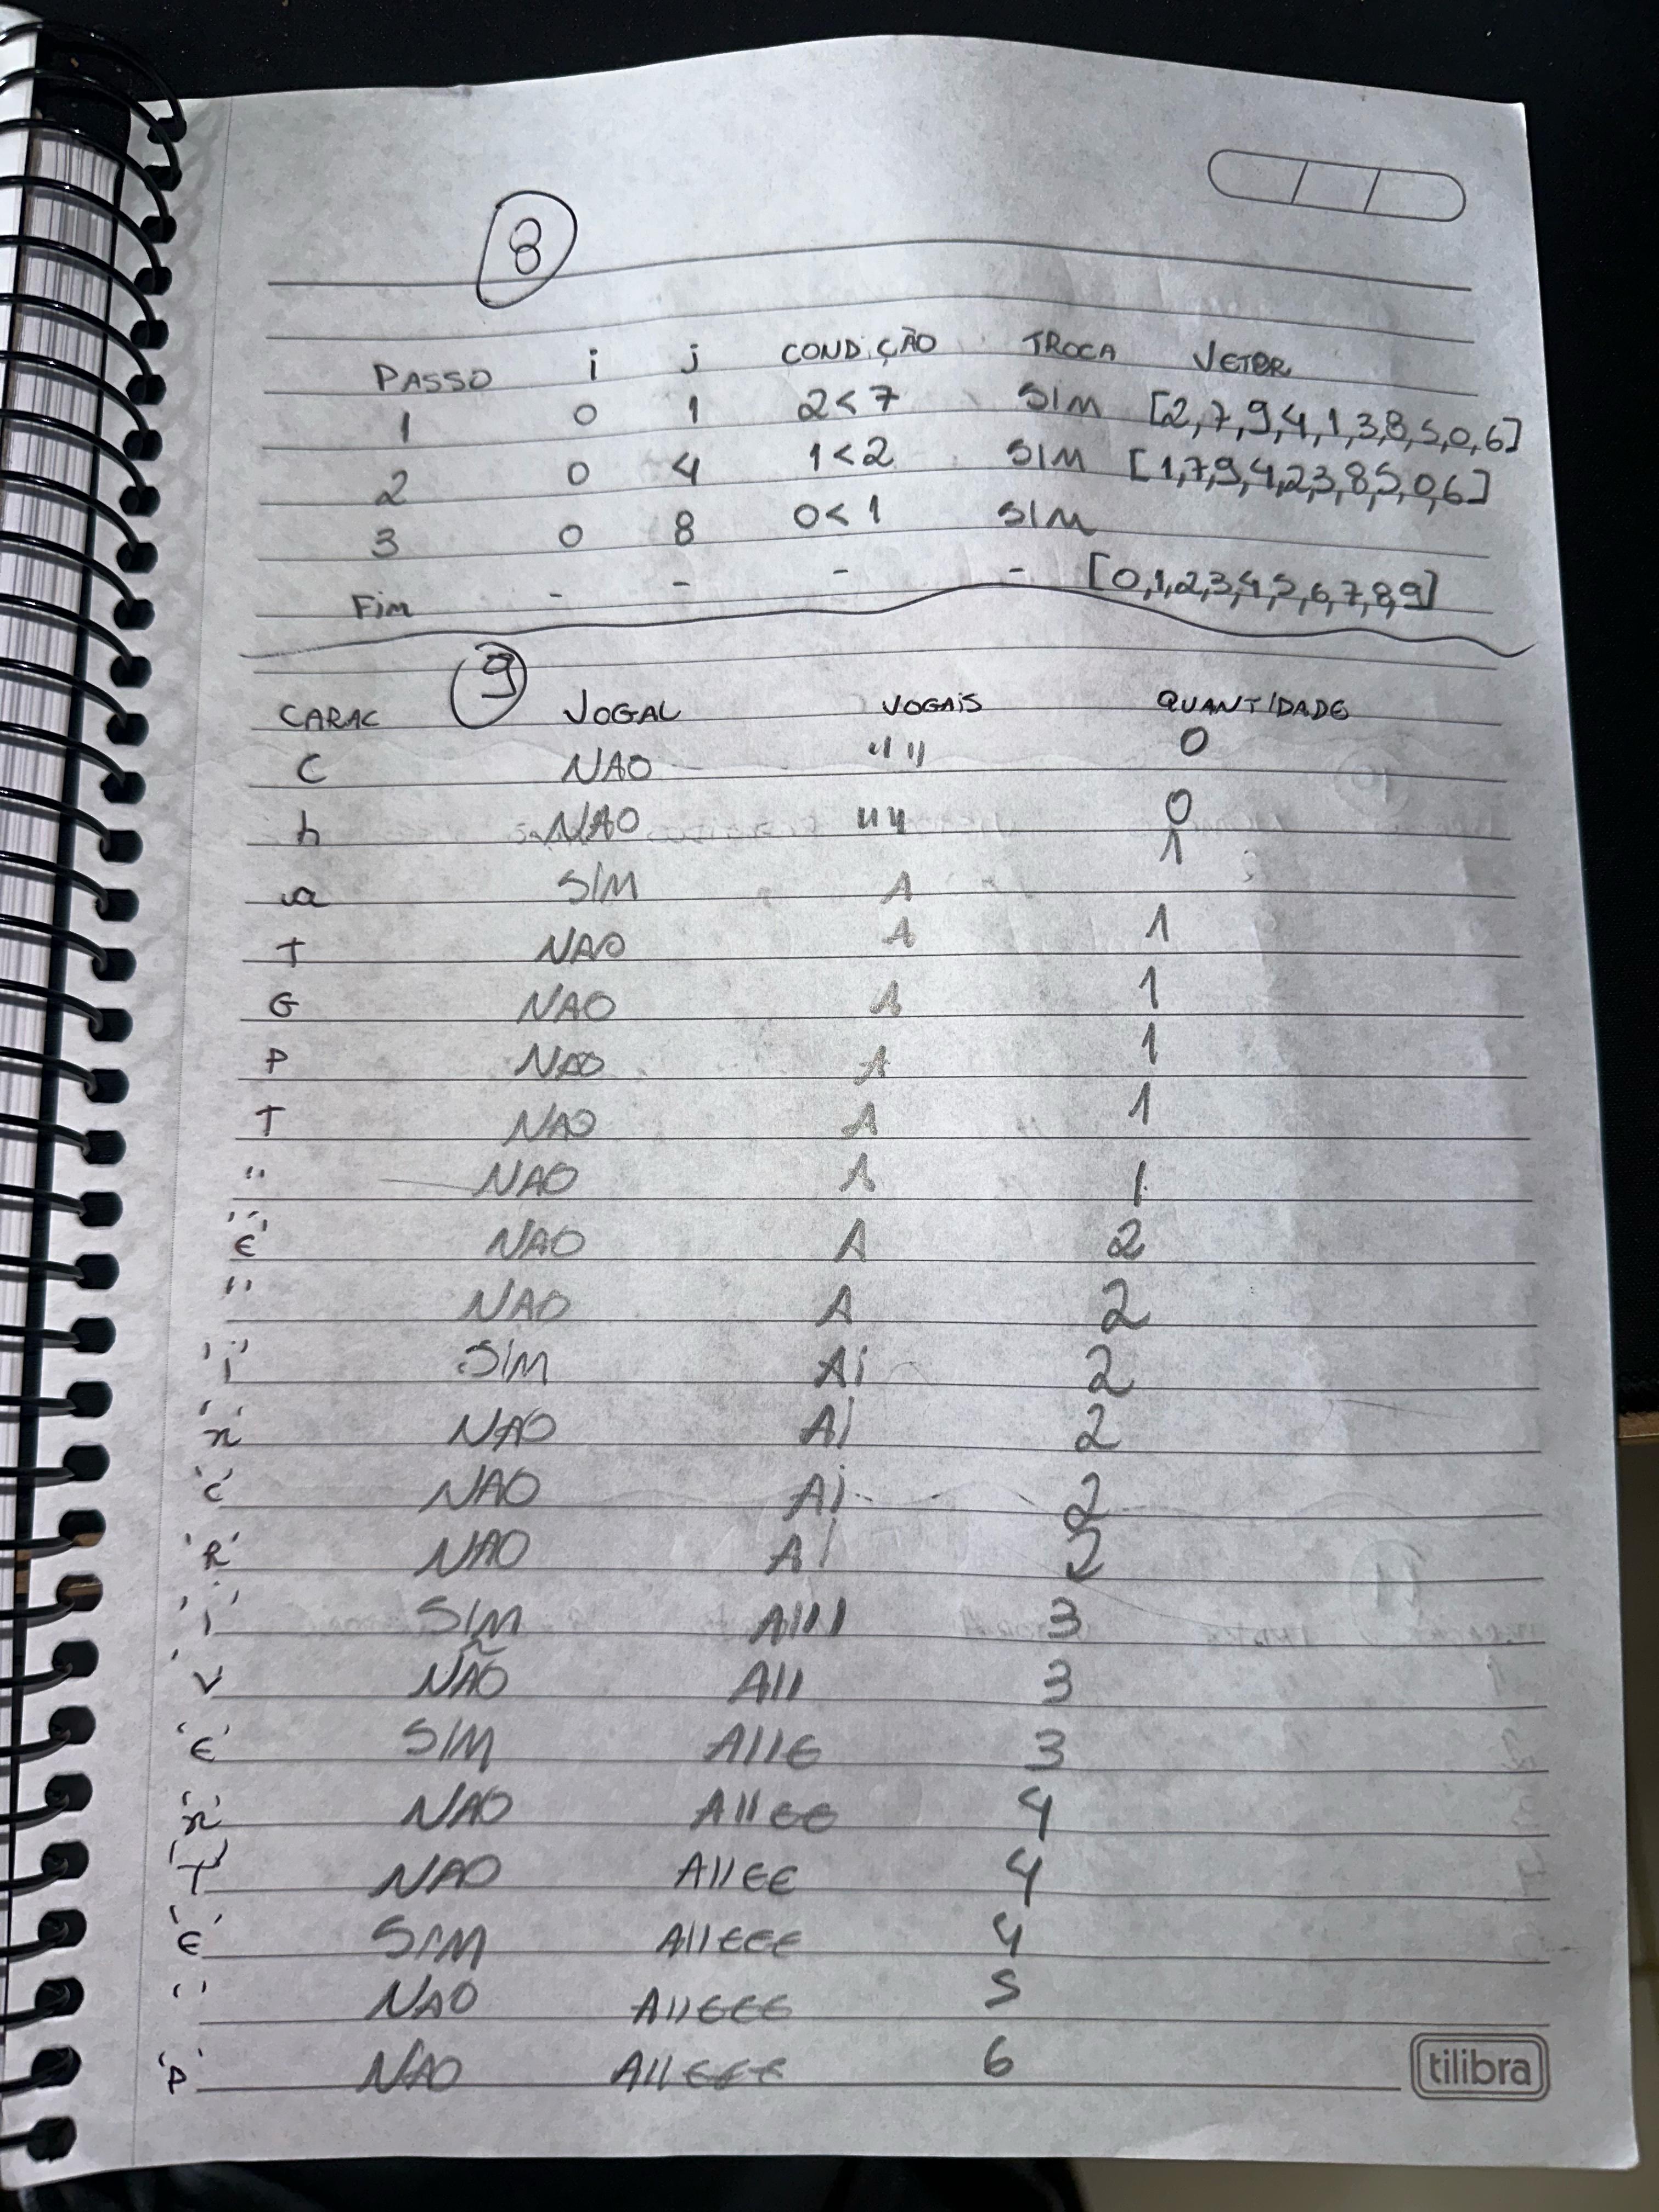 8
PASSO i j CONDIÇÃO TROCA VETOR
1 0 1 2<7 SIM [2,7,9,4,1,3,8,5,0,6]
2 0 4 1<2 SIM [1,7,9,4,2,3,8,5,0,6]
3 0 8 0<1 SIM
Fim - - - - [0,1,2,3,4,5,6,7,8,9]
9
CARAC VOGAL VOGAIS QUANTIDADE
C NAO "" 0
h NAO "" 0
a SIM A 1
T NAO A 1
G NAO A 1
P NAO A 1
T NAO A 1
" NAO A 1
'É' NAO A 2
'' NAO A 2
'i' SIM Ai 2
'n' NAO Ai 2
'c' NAO Ai 2
'R' NAO Ai 2
'i' SIM AIII 3
'V NÃO AII 3
'E' SIM AIIE 3
'n' NAO AIIEE 4
'T' NAO AIIEE 4
'E' SIM AIIEEE 4
'' NAO AIIEEE 5
'P' NAO AIIEEE 6
tilibra